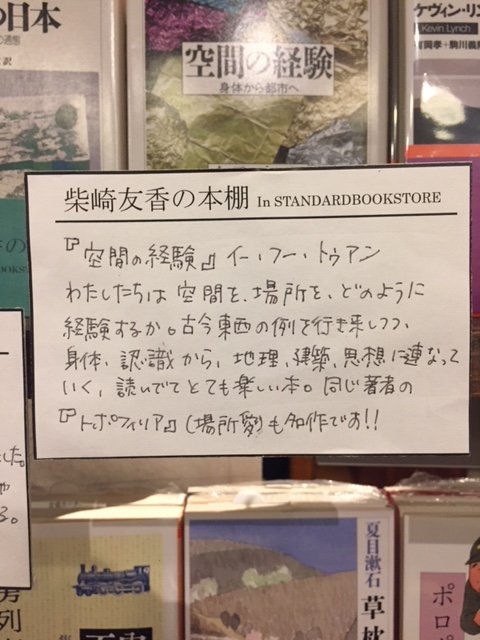 の日本
空間の経験
身体から都市へ
ケヴィン・リン
Kevin Lynch
柴崎友香の本棚 In STANDARDBOOKSTORE
『空間の経験』イー・フー・トゥアン
わたしたちは空間を、場所を、どのように
経験するか。古今東西の例を行き来しつつ、
身体、認識から、地理、建築、思想に連なって
いく、読いでてとても楽しい本。同じ著者の
『トポフィリア』(場所愛)も名作です!!
した。
る。
夏目漱石
草枕
列
ポロポ